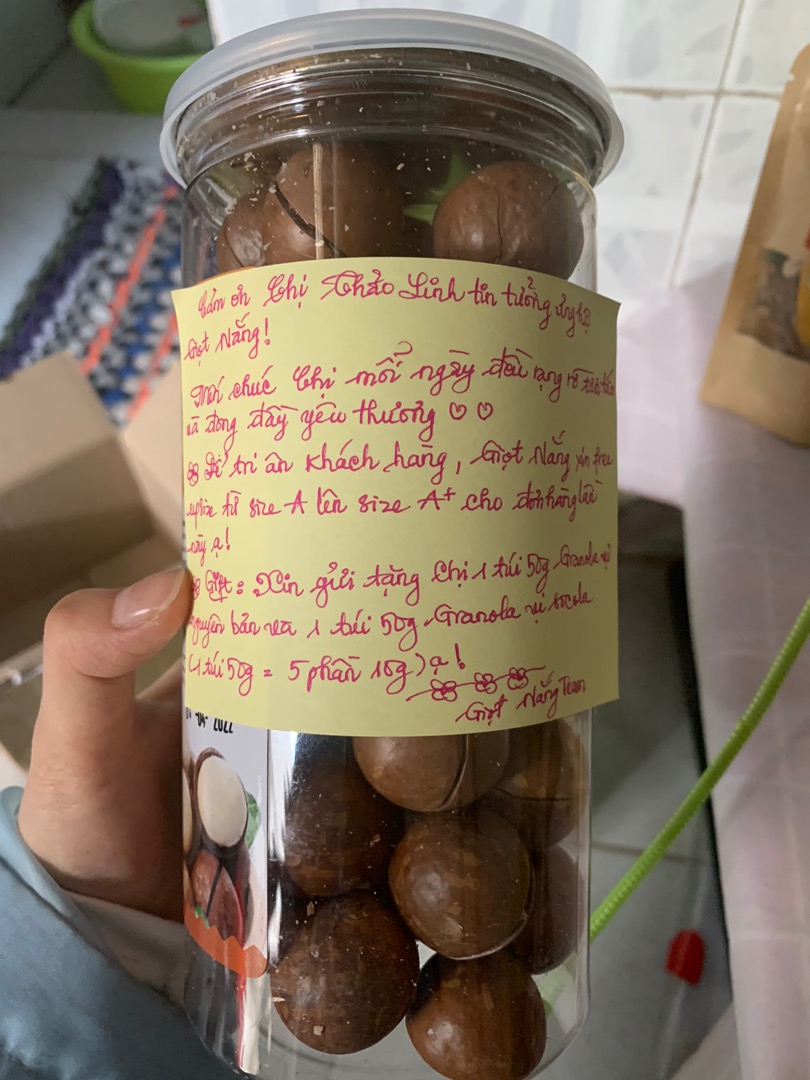 Cảm ơn Chị Thảo Linh tin tưởng ủng hộ
Giọt Nắng!
Mến chúc Chị mỗi ngày đều rạng rỡ
và đong đầy yêu thương ♡ ♡
Để tri ân khách hàng, Giọt Nắng xin free
upsize từ size A lên size A+ cho đơn hàng lần
này ạ!
Gift: Xin gửi tặng Chị 1 túi 50g Granola vị
nguyên bản và 1 túi 50g Granola vị socola
(1 túi 50g = 5 phần 10g) ạ!
Giọt Nắng Team
04 2022